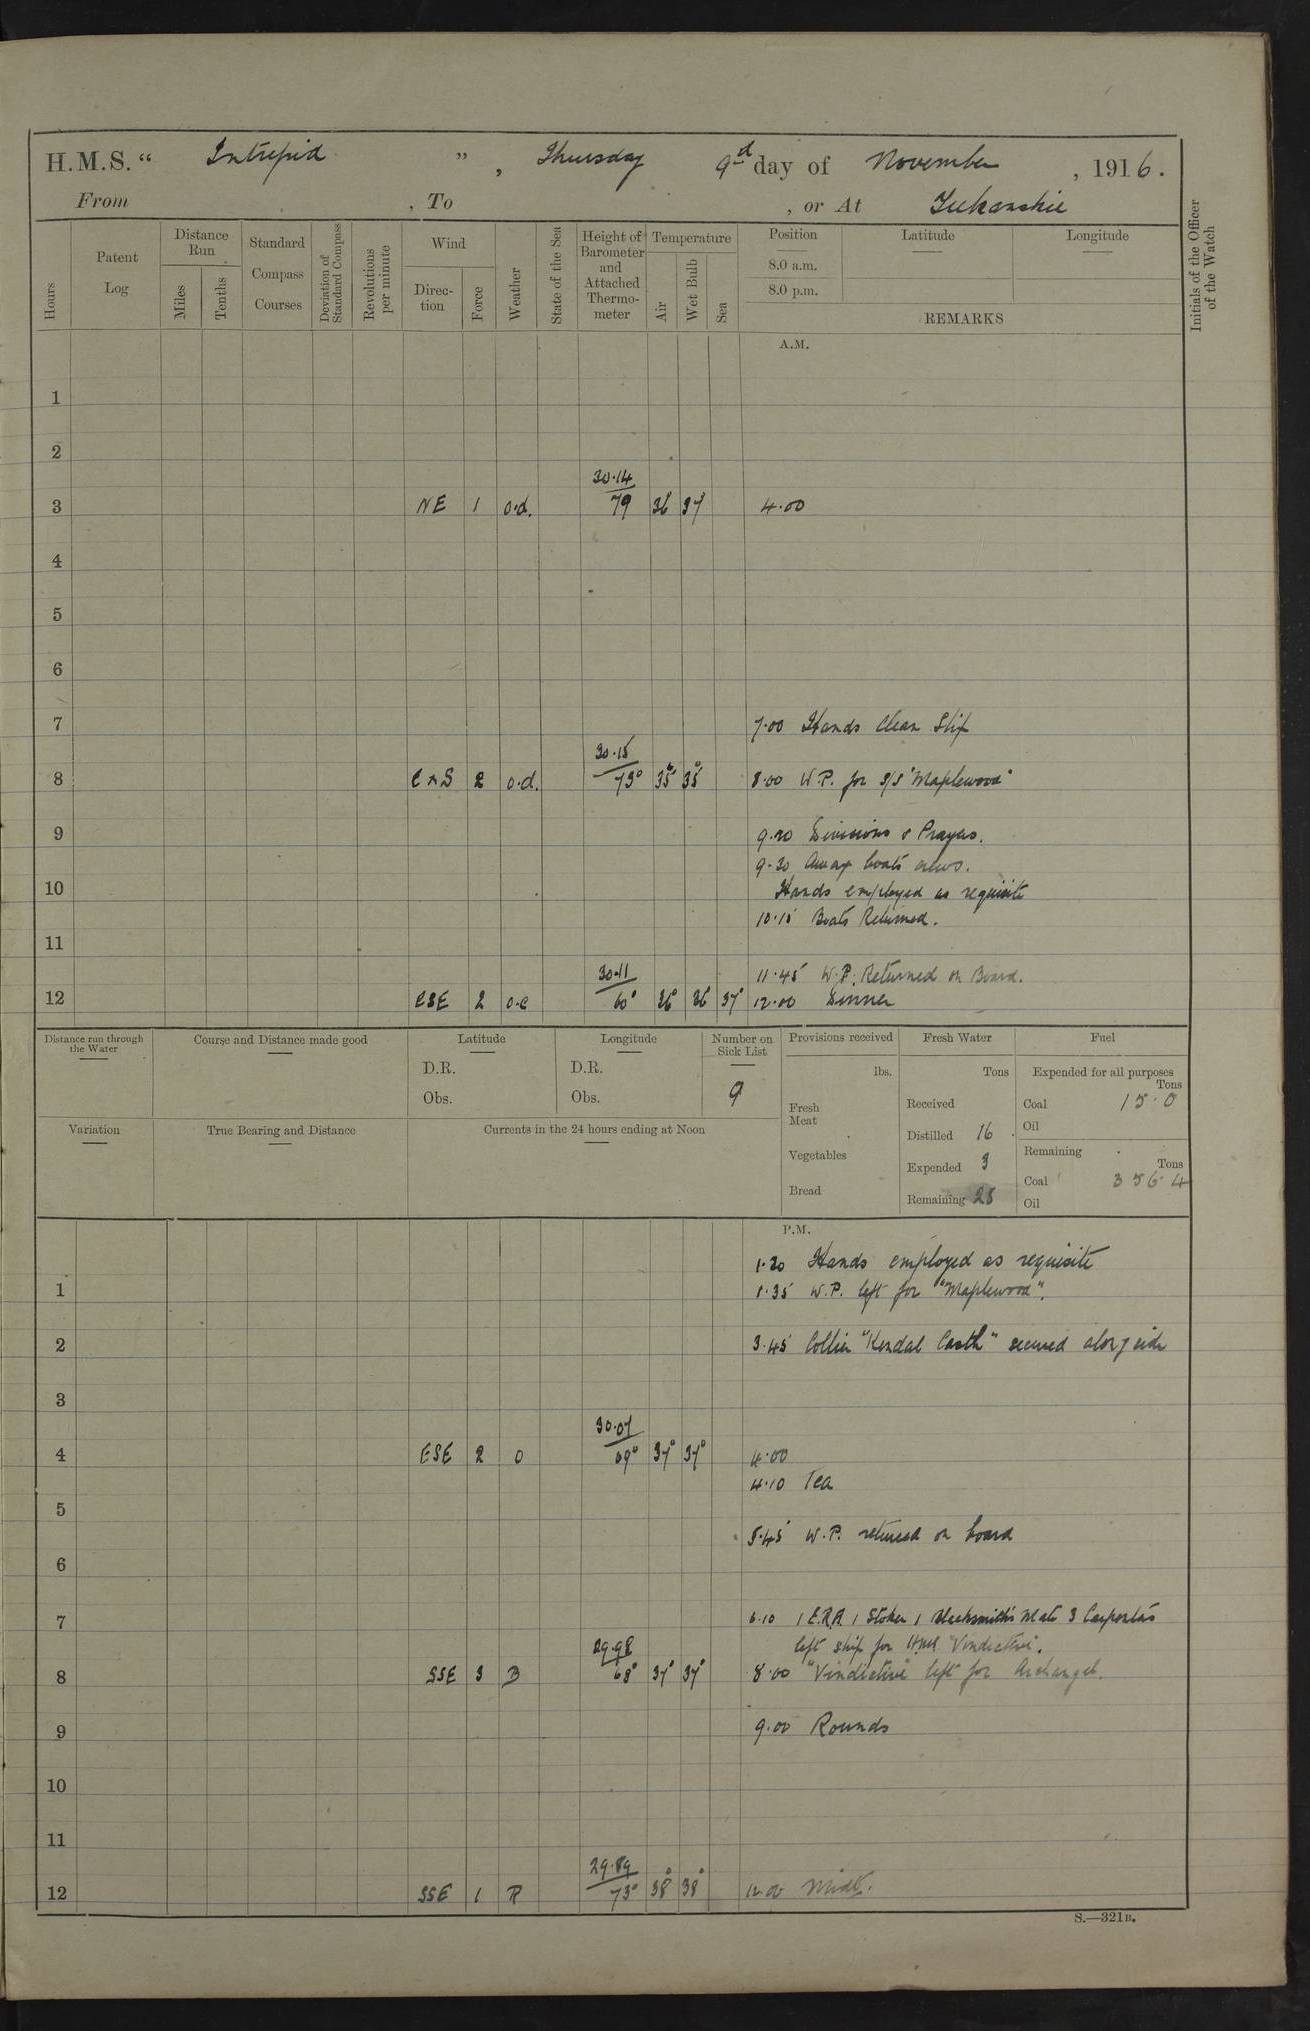 H.M.S. " Intrepid " , Thursday 9d day of November , 1916.
From , To , or At Yukanskie
Hours
Patent Log
Distance Run
Miles
Tenths
Standard Compass Courses
Deviation of Standard Compass
Revolutions per minute
Wind
Direc-tion
Force
Weather
State of the Sea
Height of Barometer and Attached Thermo-meter
Temperature
Air
Wet Bulb
Sea
Position Latitude Longitude
8.0 a.m.
8.0 p.m.
REMARKS
Initials of the Officer of the Watch
A.M.
1
2
30.14
3 NE 1 o.d. 79 36 37 4.00
4
5
6
7 7.00 Hands Clean Ship
30.15
8 E x S 2 o.d. 73° 35° 35° 8.00 W.P. for S/S "Maplewood"
9 9.20 Divisions & Prayers.
9.30 Away boats crews.
10 Hands employed as requisite
10.15 Boats Returned.
11
30.11 11.45 W.P. Returned on Board.
12 ESE 2 o.c 60° 36° 36° 37° 12.00 Dinner
Distance run through the Water
Course and Distance made good
Latitude
D.R.
Obs.
Longitude
D.R.
Obs.
Number on Sick List
9
Provisions received
lbs.
Fresh Meat
Vegetables
Bread
Fresh Water
Tons
Received
Distilled 16
Expended 3
Remaining 28
Fuel
Expended for all purposes
Tons
Coal 15.0
Oil
Remaining
Tons
Coal 356.4
Oil
Variation
True Bearing and Distance
Currents in the 24 hours ending at Noon
P.M.
1.20 Hands employed as requisite
1 1.35 W.P. left for "Maplewood".
2 3.45 Collier "Kendal Castle" secured alongside
3
30.07
4 ESE 2 O 69° 37° 37° 4.00
4.10 Tea
5
5.45 W.P. returned on board
6
7 6.10 1 E.R.A. 1 Stoker 1 Blacksmith's Mate 3 Carpenters
29.98 left ship for HMS "Vindictive".
8 SSE 3 B 68° 37° 37° 8.00 "Vindictive" left for Archangel.
9 9.00 Rounds
10
11
29.89
12 SSE 1 R 73° 38° 38° 12.00 Midt.
S.—321B.